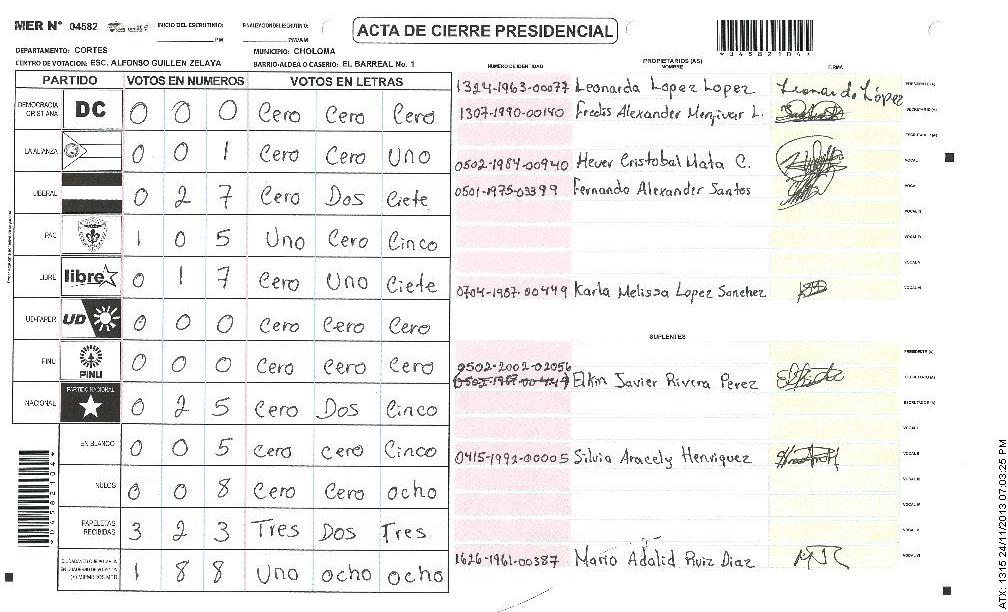 MER N° 04582 INICIO DEL ESCRUTINIO: PM FINALIZACION DEL ESCRUTINIO: PM/AM
ACTA DE CIERRE PRESIDENCIAL
04582104
DEPARTAMENTO: CORTES MUNICIPIO: CHOLOMA
CENTRO DE VOTACION: ESC. ALFONSO GUILLEN ZELAYA BARRIO-ALDEA O CASERIO: EL BARREAL No. 1
PARTIDO VOTOS EN NUMEROS VOTOS EN LETRAS
DEMOCRACIA CRISTIANA DC 0 0 0 Cero Cero Cero
LA ALIANZA 0 0 1 Cero Cero Uno
LIBERAL 0 2 7 Cero Dos Ciete
PAC 1 0 5 Uno Cero Cinco
LIBRE libre 0 1 7 Cero Uno Ciete
UD-FAPER UD 0 0 0 Cero Cero Cero
PINU PINU 0 0 0 Cero Cero Cero
NACIONAL PARTIDO NACIONAL 0 2 5 Cero Dos Cinco
EN BLANCO 0 0 5 Cero cero Cinco
NULOS 0 0 8 Cero Cero ocho
PAPELETAS RECIBIDAS 3 2 3 Tres Dos Tres
1 8 8 Uno ocho ocho
04582104
PROPIETARIOS (AS)
NUMERO DE IDENTIDAD NOMBRE FIRMA
1324-1963-00077 Leonarda Lopez Lopez Leonarda López PRESIDENTE (A)
1307-1990-00140 Fredis Alexander Menjivar L. SECRETARIO (A)
ESCRUTADOR (A)
0502-1984-00940 Hever Cristobal Mata C. VOCAL I
0501-1975-03399 Fernando Alexander Santos
VOCAL III
VOCAL IV
VOCAL V
0704-1987-00449 Karla Melissa Lopez Sanchez VOCAL VI
SUPLENTES
PRESIDENTE (A)
0502-2002-02056
Elkin Javier Rivera Perez SECRETARIO (A)
ESCRUTADOR (A)
VOCAL I
0415-1992-00005 Silvia Aracely Henriquez VOCAL II
VOCAL III
VOCAL IV
VOCAL V
1626-1961-00387 Mario Adalid Ruiz Diaz VOCAL VI
ATX: 1315 24/11/2013 07:03:25 PM